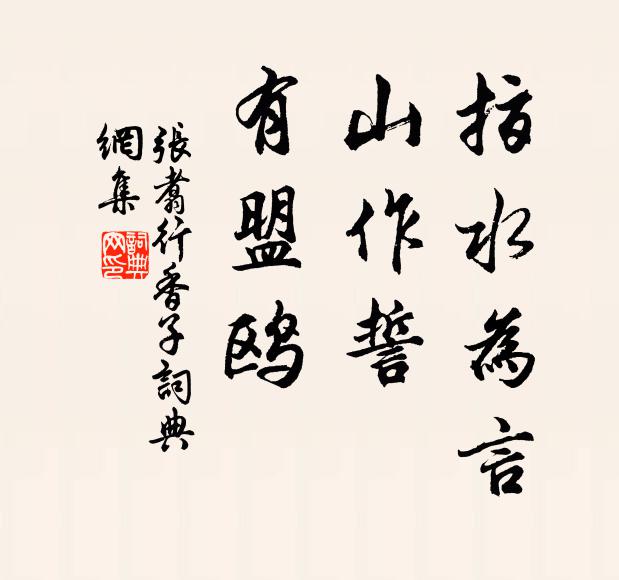 指水為言
山作誓
有盟鸥
張翥行香子詞典
網集
詞典
网印